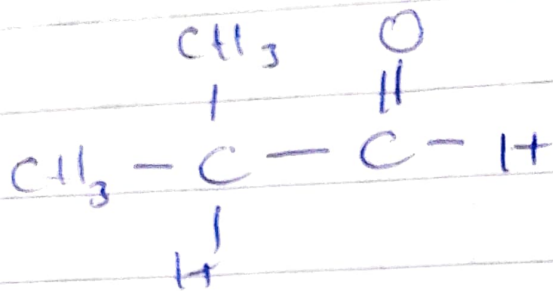 CH3 O
| ||
CH3 - C - C - H
|
H